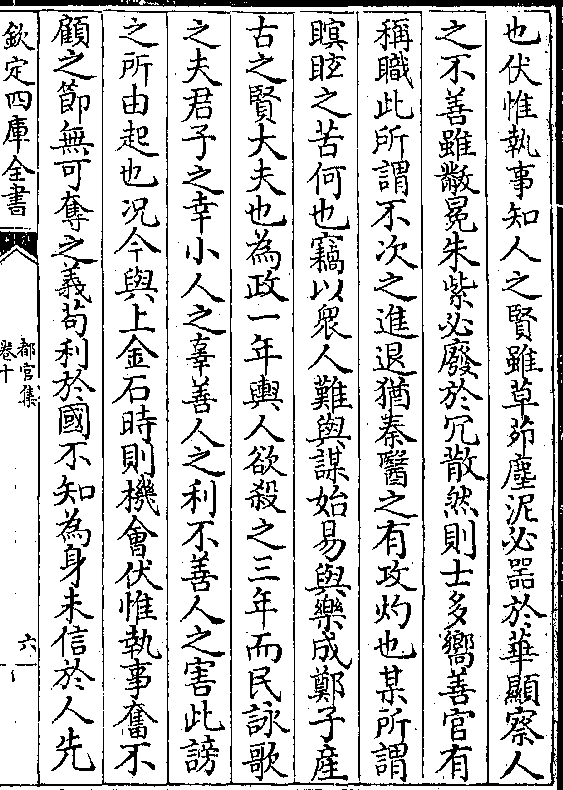 也伏惟執事知人之賢雖草茆塵泥必器於華顯察人
之不善雖黻冕朱紫必廢於冗散然則士多嚮善官有
稱職此所謂不次之進退猶秦醫之有攻灼也某所謂
瞑眩之苦何也竊以衆人難與謀始易與樂成鄭子產
古之賢大夫也為政一年輿人欲殺之三年而民詠歌
之夫君子之幸小人之辜善人之利不善人之害此謗
之所由起也况今與上金石時則機會伏惟執事奮不
顧之節無可奪之義苟利於國不知為身未信於人先
欽定四庫全書
都官集
卷十
六